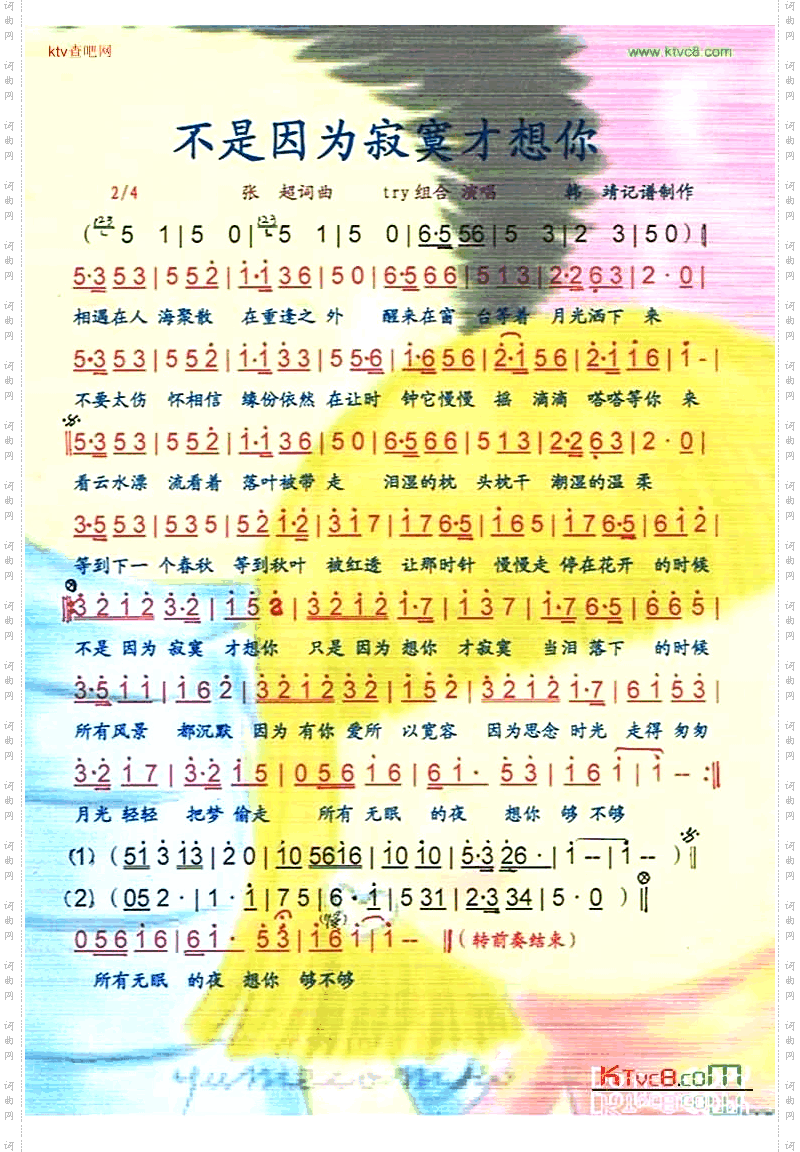 ktv查吧网 www.ktvc8.com
不是因为寂寞才想你
2/4 张 超词曲 try组合 演唱 韩 靖记谱制作
( 123 5 1 | 5 0 | 123 5 1 | 5 0 | 6·5 56 | 5 3 | 2 3 | 5 0 )
5·3 5 3 | 5 5 2 | 1·1 3 6 | 5 0 | 6·5 6 6 | 5 1 3 | 2·2 6 3 | 2 · 0 |
相遇在人 海聚散 在重逢之 外 醒来在窗 台等着 月光洒下 来
5·3 5 3 | 5 5 2 | 1·1 3 3 | 5 5·6 | 1·6 5 6 | 2·1 5 6 | 2·1 1 6 | 1 - |
不要太伤 怀相信 缘份依然 在让时 钟它慢慢 摇 滴滴 嗒嗒等你 来
5·3 5 3 | 5 5 2 | 1·1 3 6 | 5 0 | 6·5 6 6 | 5 1 3 | 2·2 6 3 | 2 · 0 |
看云水漂 流看着 落叶被带 走 泪湿的枕 头枕干 潮湿的温 柔
3·5 5 3 | 5 3 5 | 5 2 1·2 | 3 1 7 | 1 7 6·5 | 1 6 5 | 1 7 6·5 | 6 1 2 |
等到下一 个春秋 等到秋叶 被红透 让那时针 慢慢走 停在花开 的时候
3 2 1 2 3·2 | 1 5 2 | 3 2 1 2 1·7 | 1 3 7 | 1·7 6·5 | 6 6 5 |
不是 因为 寂寞 才想你 只是 因为 想你 才寂寞 当泪 落下 的时候
3·5 1 1 | 1 6 2 | 3 2 1 2 3 2 | 1 5 2 | 3 2 1 2 1·7 | 6 1 5 3 |
所有风景 都沉默 因为 有你 爱所 以宽容 因为思念 时光 走得 匆匆
3·2 1 7 | 3·2 1 5 | 0 5 6 1 6 | 6 1 · 5 3 | 1 6 1 | 1 -- :
月光 轻轻 把梦 偷走 所有 无眠 的夜 想你 够 不够
(1) ( 51 3 13 | 2 0 | 10 5616 | 10 10 | 5·3 26 · | 1 -- | 1 -- )
(2) ( 05 2 · | 1 · 1 | 7 5 | 6 · 1 | 5 31 | 2·3 34 | 5 · 0 )
0 5 6 1 6 | 6 1 · 5 3 | 1 6 1 | 1 -- (转前奏结束)
所有无眠 的夜 想你 够不够
KTvc8.com